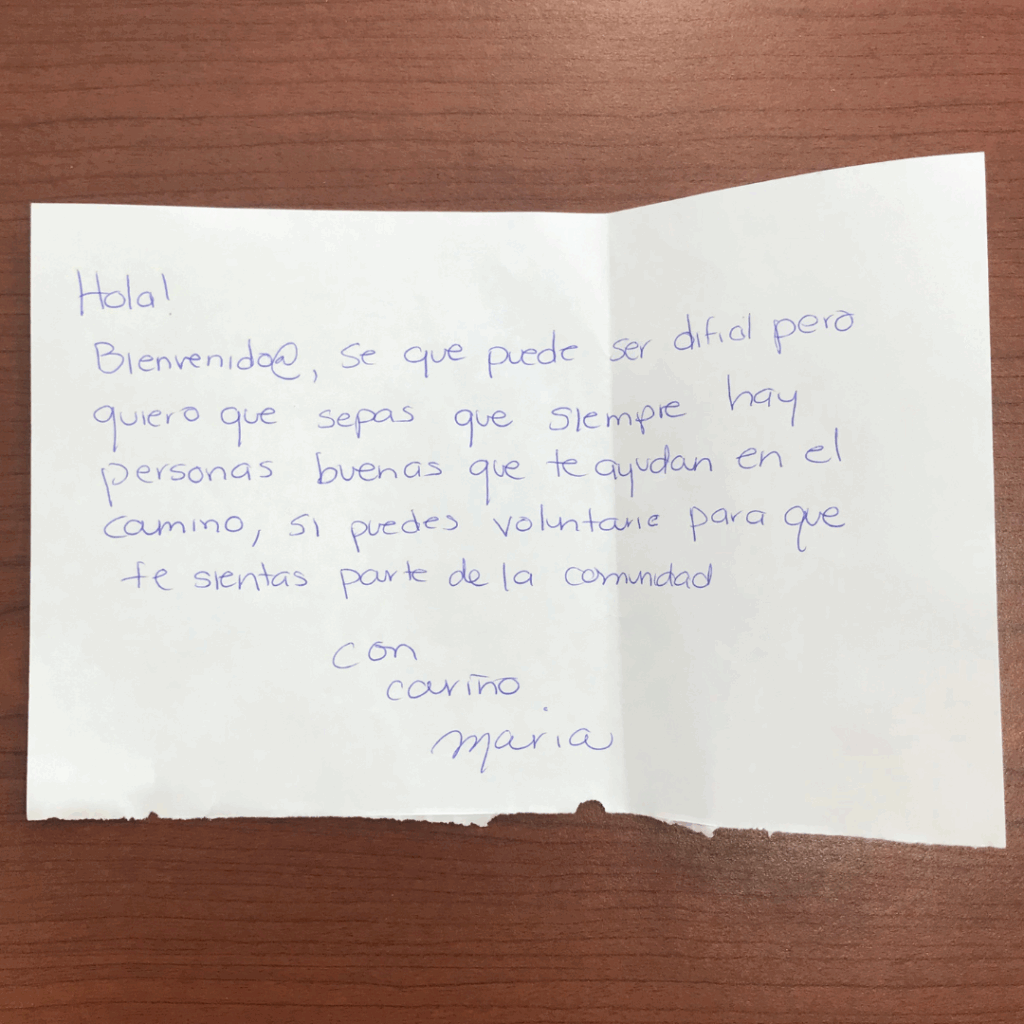 Hola!
Bienvenido@, se que puede ser dificil pero
quiero que sepas que siempre hay
personas buenas que te ayudan en el
camino, si puedes voluntarie para que
te sientas parte de la comunidad
con
cariño
maria